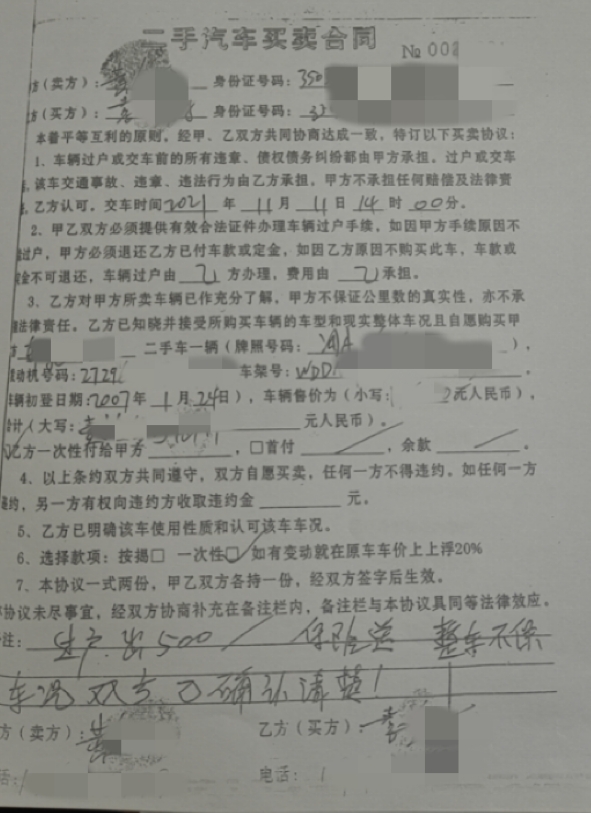 二手汽车买卖合同
№ 002
方（卖方）：黄 身份证号码：350
方（买方）： 身份证号码：3
本着平等互利的原则，经甲、乙双方共同协商达成一致，特订以下买卖协议：
1、车辆过户或交车前的所有违章、债权债务纠纷都由甲方承担。过户或交车
，该车交通事故、违章、违法行为由乙方承担，甲方不承担任何赔偿及法律责
，乙方认可。交车时间2021年11月11日14时00分。
2、甲乙双方必须提供有效合法证件办理车辆过户手续。如因甲方手续原因不
过户，甲方必须退还乙方已付车款或定金，如因乙方原因不购买此车，车款或
定金不可退还，车辆过户由乙方办理，费用由乙承担。
3、乙方对甲方所卖车辆已作充分了解，甲方不保证公里数的真实性，亦不承
法律责任。乙方已知晓并接受所购买车辆的车型和现实整体车况且自愿购买甲
方 二手车一辆（牌照号码： A ），
动机号码：2729 车架号：WDD 。
车辆初登日期：2007年1月24日），车辆售价为（小写： 元人民币）。
计（大写： 元人民币）。
乙方一次性付给甲方 ，□首付 ，余款 。
4、以上条约双方共同遵守，双方自愿买卖，任何一方不得违约。如任何一方
违约，另一方有权向违约方收取违约金 元。
5、乙方已明确该车使用性质和认可该车车况。
6、选择款项：按揭□ 一次性□✓ 如有变动就在原车车价上上浮20%
7、本协议一式两份，甲乙双方各持一份，经双方签字后生效。
协议未尽事宜，经双方协商补充在备注栏内，备注栏与本协议具同等法律效应。
注： 户 出500 / 保险送 整车不保
车况双方已确认清楚！
方（卖方）：黄 乙方（买方）：
话： 电话：